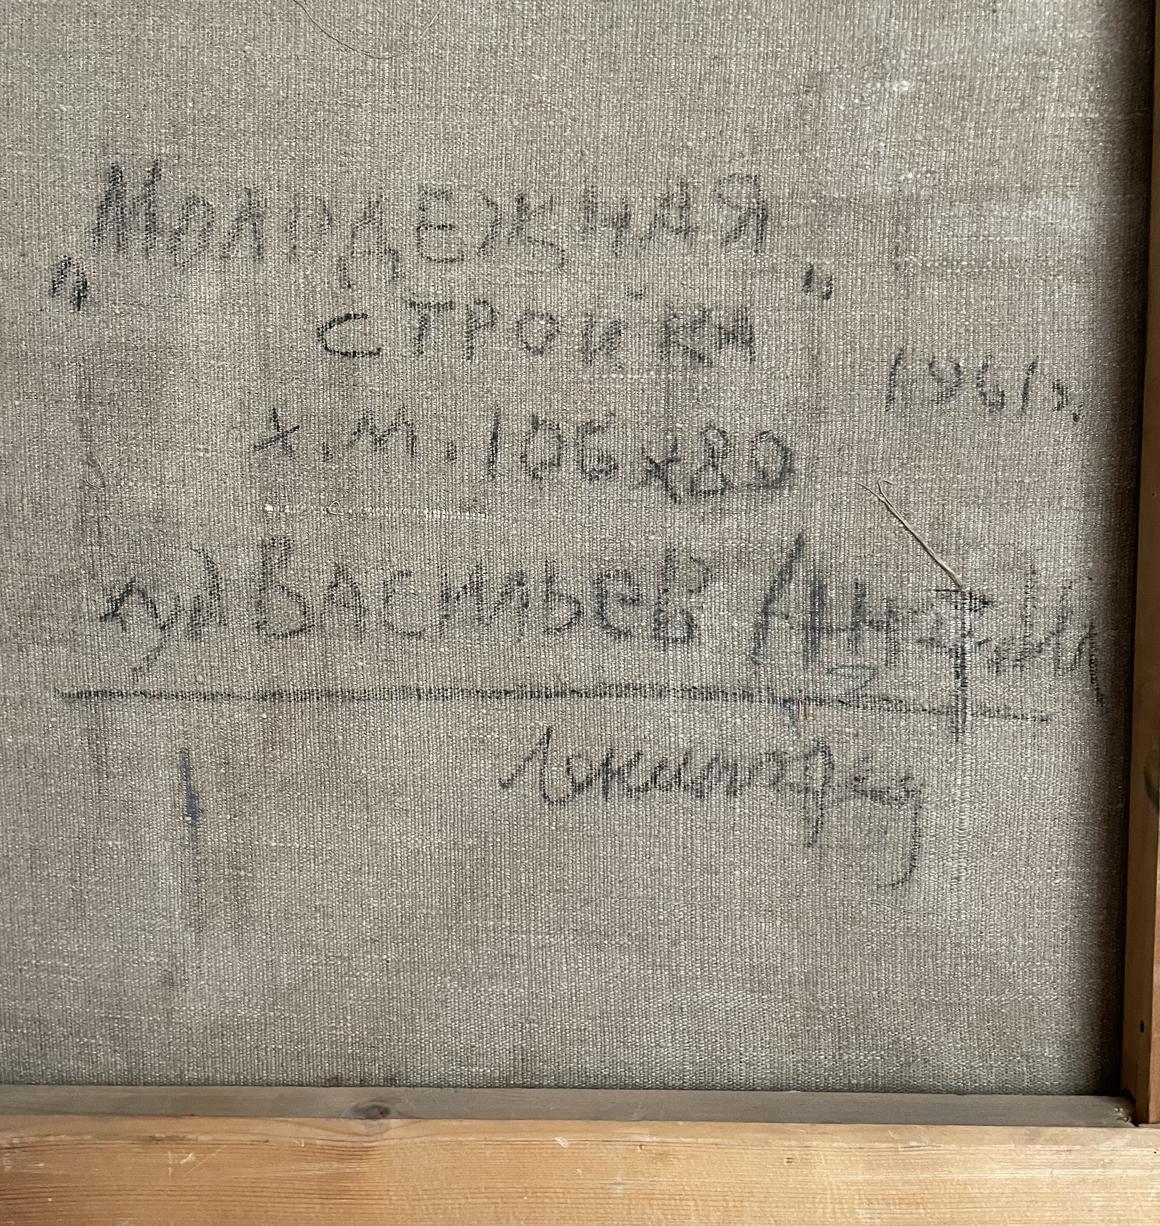 „Молодежная
стройка"
1961г.
х.м. 106х80
худ Васильев
Ленинград